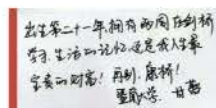 出生第二十一年,拥有两周在剑桥
学习、生活的记忆,这是我人生最
宝贵的财富!再别,康桥!
暨南大学 甘蕾